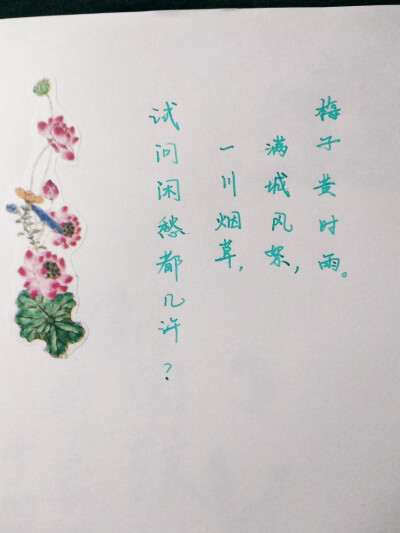 试问闲愁都几许？
一川烟草，
满城风絮，
梅子黄时雨。